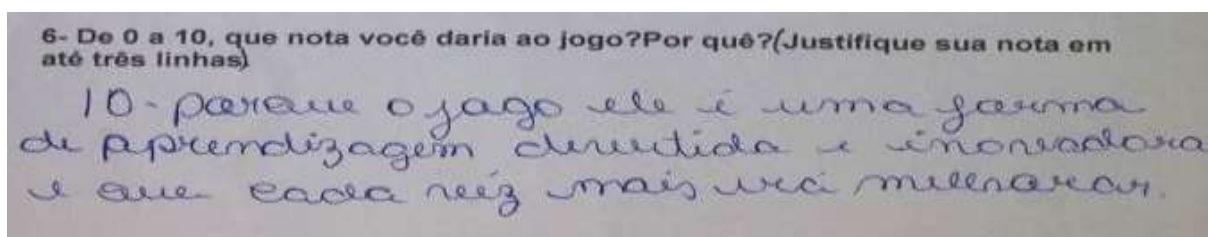 6- De 0 a 10, que nota você daria ao jogo?Por quê?(Justifique sua nota em
até três linhas)
10 - porque o jogo ele é uma forma
de aprendizagem divertida e inovadora
e que cada vez mais vai melhorar.